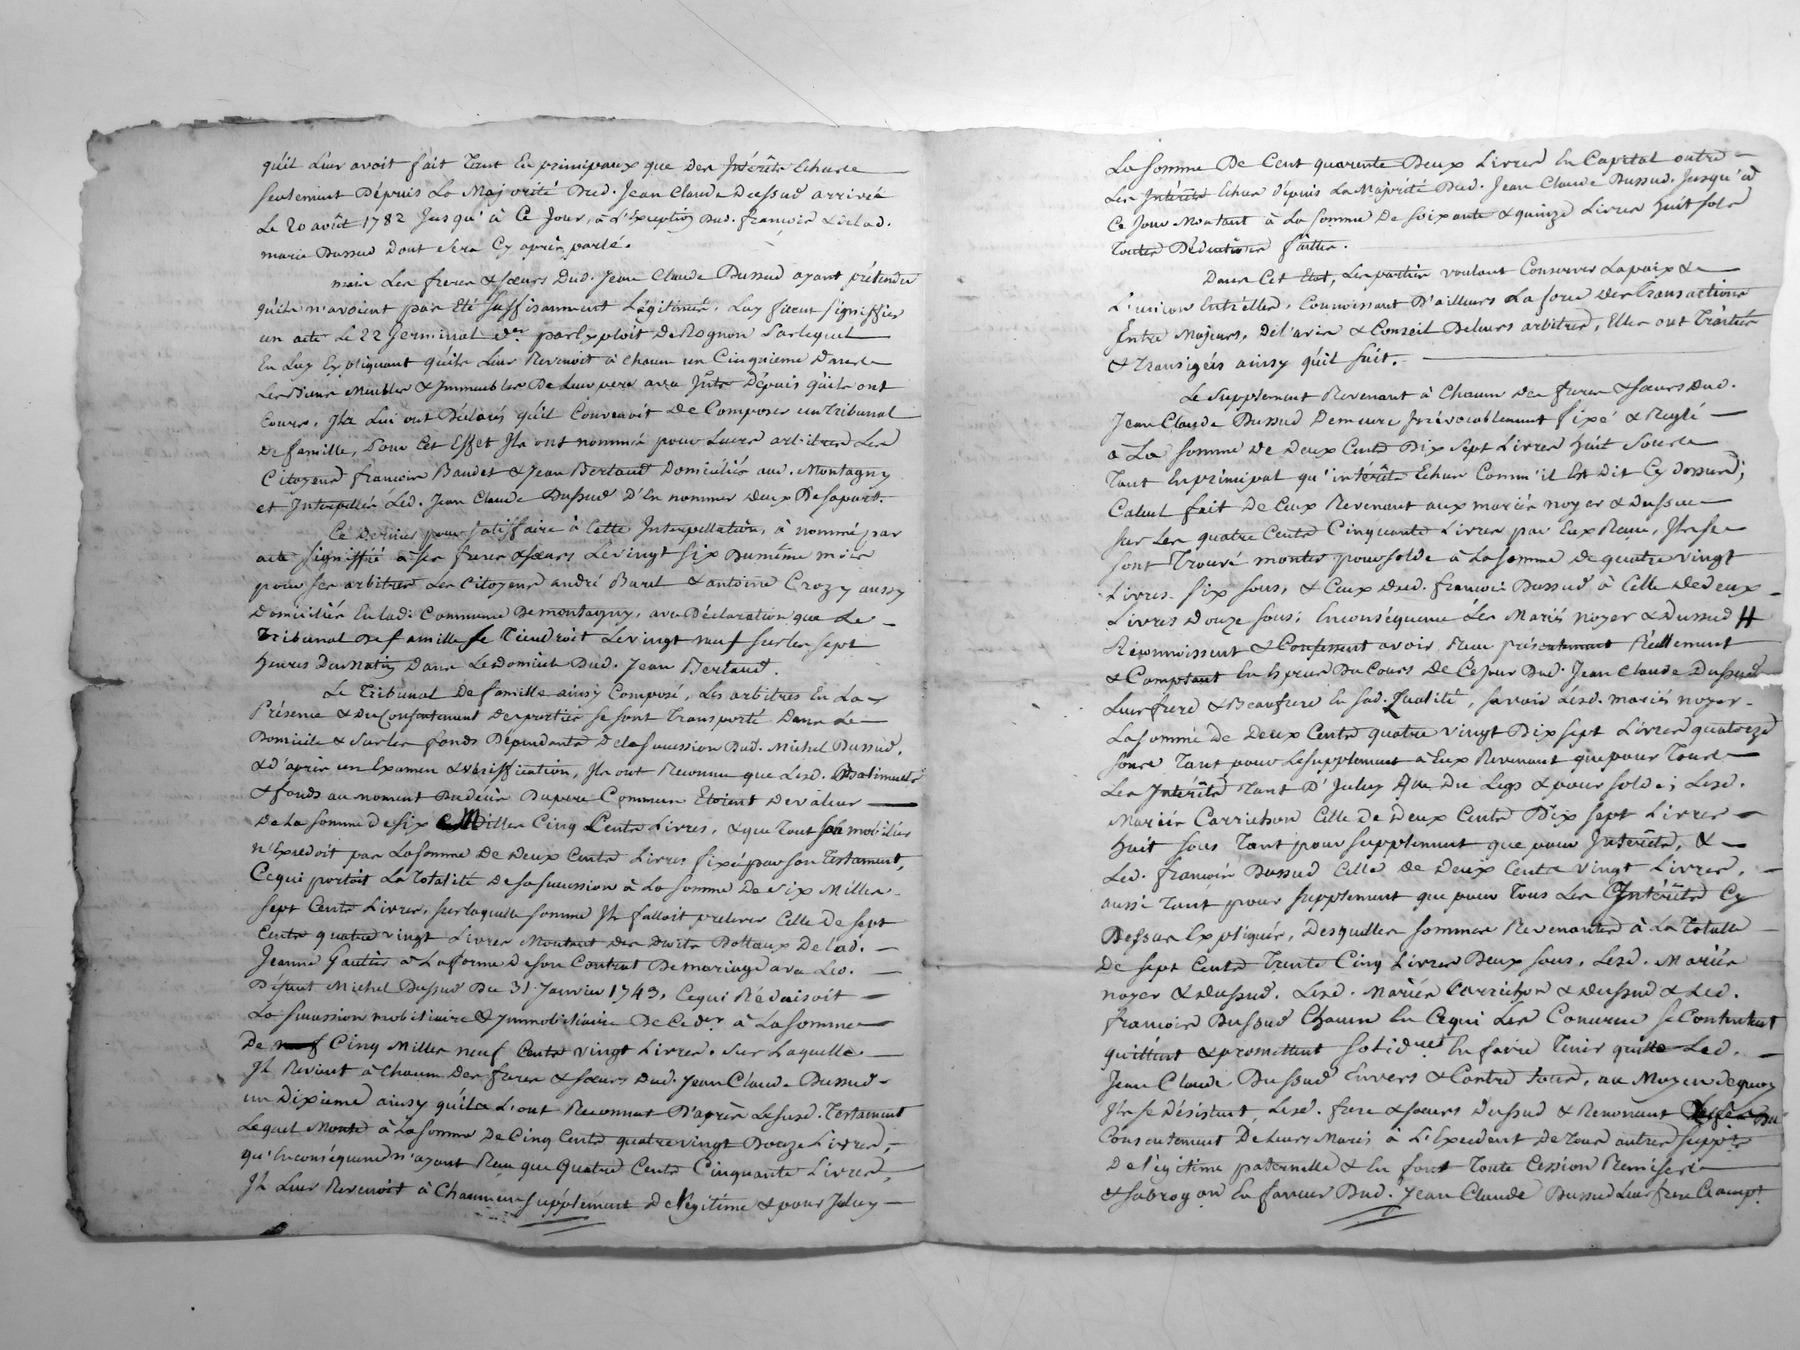 qu'il leur avoit fait tant En principaux que des Intérêts Echus
seulement Dépuis La Majorité Dud. Jean Claude Dussud arrivée
Le 20 août 1782 Jusqu'à Ce Jour, à l'Exception Dud. françois & de lad.
marie Dussud dont sera Cy après parlé.
mais Les freres & sœurs Dud. Jean Claude Dussud ayant prétendu
qu'ils n'avoient pas Eté suffisamment Légitimés, Luy firent signiffier
un acte Le 22 Germinal der. par Exploit De Rognon Par lequel
En Luy Expliquant qu'ils Leur Revenoit à chacun un Cinquieme Dans
Les Biens Meubles & Immeubles De Leur pere avec Jnts Dépuis qu'ils ont
Cours, Ils Lui ont Déclarés qu'il Convenoit De Composer un Tribunal
De famille, Pour Cet Effet Ils ont nommés pour Leurs arbitres Les
Citoyens françois Baudet & Jean Bertaud Domiciliés aud. Montagny
et Interpellés Led. Jean Claude Dussud D'En nommer deux De sa part.
Ce Dernier pour satisfaire à Cette Interpellation, à nommé par
acte signiffié à ses freres & sœurs Le vingt six Du même mois
pour ses arbitres Les Citoyens andré Burel & antoine Crozy aussy
Domiciliés En lad. Commune De montagny, avec Déclaration que Le
Tribunal De famille se Tiendroit Le vingt neuf sur les sept
heures Du matin Dans Le Domicile Dud. Jean Bertaud.
Le Tribunal De famille ainsy Composé, Les arbitres En La
Présence & Du Consentement Des parties se sont Transporté Dans Le
Domicile & sur les fonds Dépendants De la succession Dud. Michel Dussud,
& d'après un Examen & vérification, Ils ont Reconnu que Lesd. Batiments
& fonds au moment Du décès Du pere Commun Etoient De valeur
De La somme De six Milles Cinq Cents Livres, & que Tout son mobilier
n'Excedoit pas La somme De Deux Cents Livres fixé par son Testament,
Ce qui portoit La Totalité De sa succession à La somme De six Milles
sept Cents Livres, sur laquelle somme Il falloit prelever Celle De sept
Cents quatre vingt Livres Montant des Droits Dottaux De Lad.
Jeanne Gautier à La forme De son Contrat De mariage avec Led.
Défunt Michel Dussud Du 31 Janvier 1743, Ce qui Réduisoit
La succession mobiliaire & Immobiliaire De Ceder. à La somme
De Cinq Milles neuf Cents vingt Livres. Sur Laquelle
Il Revient à chacun Des freres & sœurs Dud. Jean Claude Dussud
un Dixieme ainsy qu'ils L'ont Reconnut D'après Le susd. Testament
Lequel Monte à La somme De Cinq Cents quatre vingt Douze Livres,
qu'En conséquence n'ayant Reçu que Quatre Cents Cinquante Livres,
Il Leur Revenoit à Chacun en supplément De Légitime & pour Jceluy
La somme De Cent quarente Deux Livres En Capital outre
Les Intérêts Echus dépuis La Majorité Dud. Jean Claude Dussud Jusqu'à
Ce Jour Montant à La somme De soixante & quinze Livres huit sols
Toutes Déductions faittes.
Dans Cet Etat, Les parties voulant Conserver La paix &
L'union Entr'elles, Connoissant D'ailleurs La force des Transactions
Entre Majeurs, De l'avis & Conseil De leurs arbitres, Elles ont Traittés
& transigés ainsy qu'il suit.
Le supplement Revenant à Chacun Des freres & sœurs Dud.
Jean Claude Dussud Demeure Irrévocablement fixé & Reglé
à La somme De Deux Cents Dix Sept Livres huit sous
Tant En principal qu'intérêts Echus Comm'il Est Dit Cy dessus,
Calcul fait De Ceux Revenant aux mariés noyer & Dussud
sur Les quatre Cents Cinquante Livres par Eux Reçu, Ils se
sont Trouvé monter pour solde à La somme De quatre vingt
Livres six sous, & Ceux Dud. françois Dussud à Celle De Deux
Livres Douze sous; En conséquence Les Mariés noyer & Dussud H
Réconnoissent & Confessent avoir Reçu présentement Réellement
& Comptant En Especes Du Cours De Ce Jour Dud. Jean Claude Dussud
Leur frere & Beaufrere En sad. Qualité, savoir Lesd. mariés noyer
La somme De Deux Cents quatre vingt Dix sept Livres quatorze
sous Tant pour Le supplement à Eux Revenant que pour Tous
Les Intérêts Tant D'Jceluy que Du Legs & pour solde; Lesd.
Mariés Carrichon Celle De Deux Cents Dix sept Livres
huit sous Tant pour supplement que pour Intérêts, &
Led. françois Dussud Celle De Deux Cents vingt Livres,
aussi Tant pour supplement que pour Tous Les Intérêts Cy
Dessus Expliqués, Desquelles sommes Revenantes à La Totalle
De sept Cents Trente Cinq Livres Deux sous, Lesd. Mariés
noyer & Dussud, Lesd. Mariés Carrichon & Dussud & Led.
françois Dussud Chacun En Ce qui Les Concerne se Contentent
quittent & promettent solidmet En faire Tenir quitte Led.
Jean Claude Dussud Envers & Contre tous, au Moyen De quoy
Ils se Désistent, Lesd. frere & sœurs Dussud & Renoncent Du
Consentement De Leurs Maris à L'Excedent De Tous autres suppts
De légitime paternelle & En font Toute Cession Remise
& subrogaon En faveur Dud. Jean Claude Dussud Leur frere